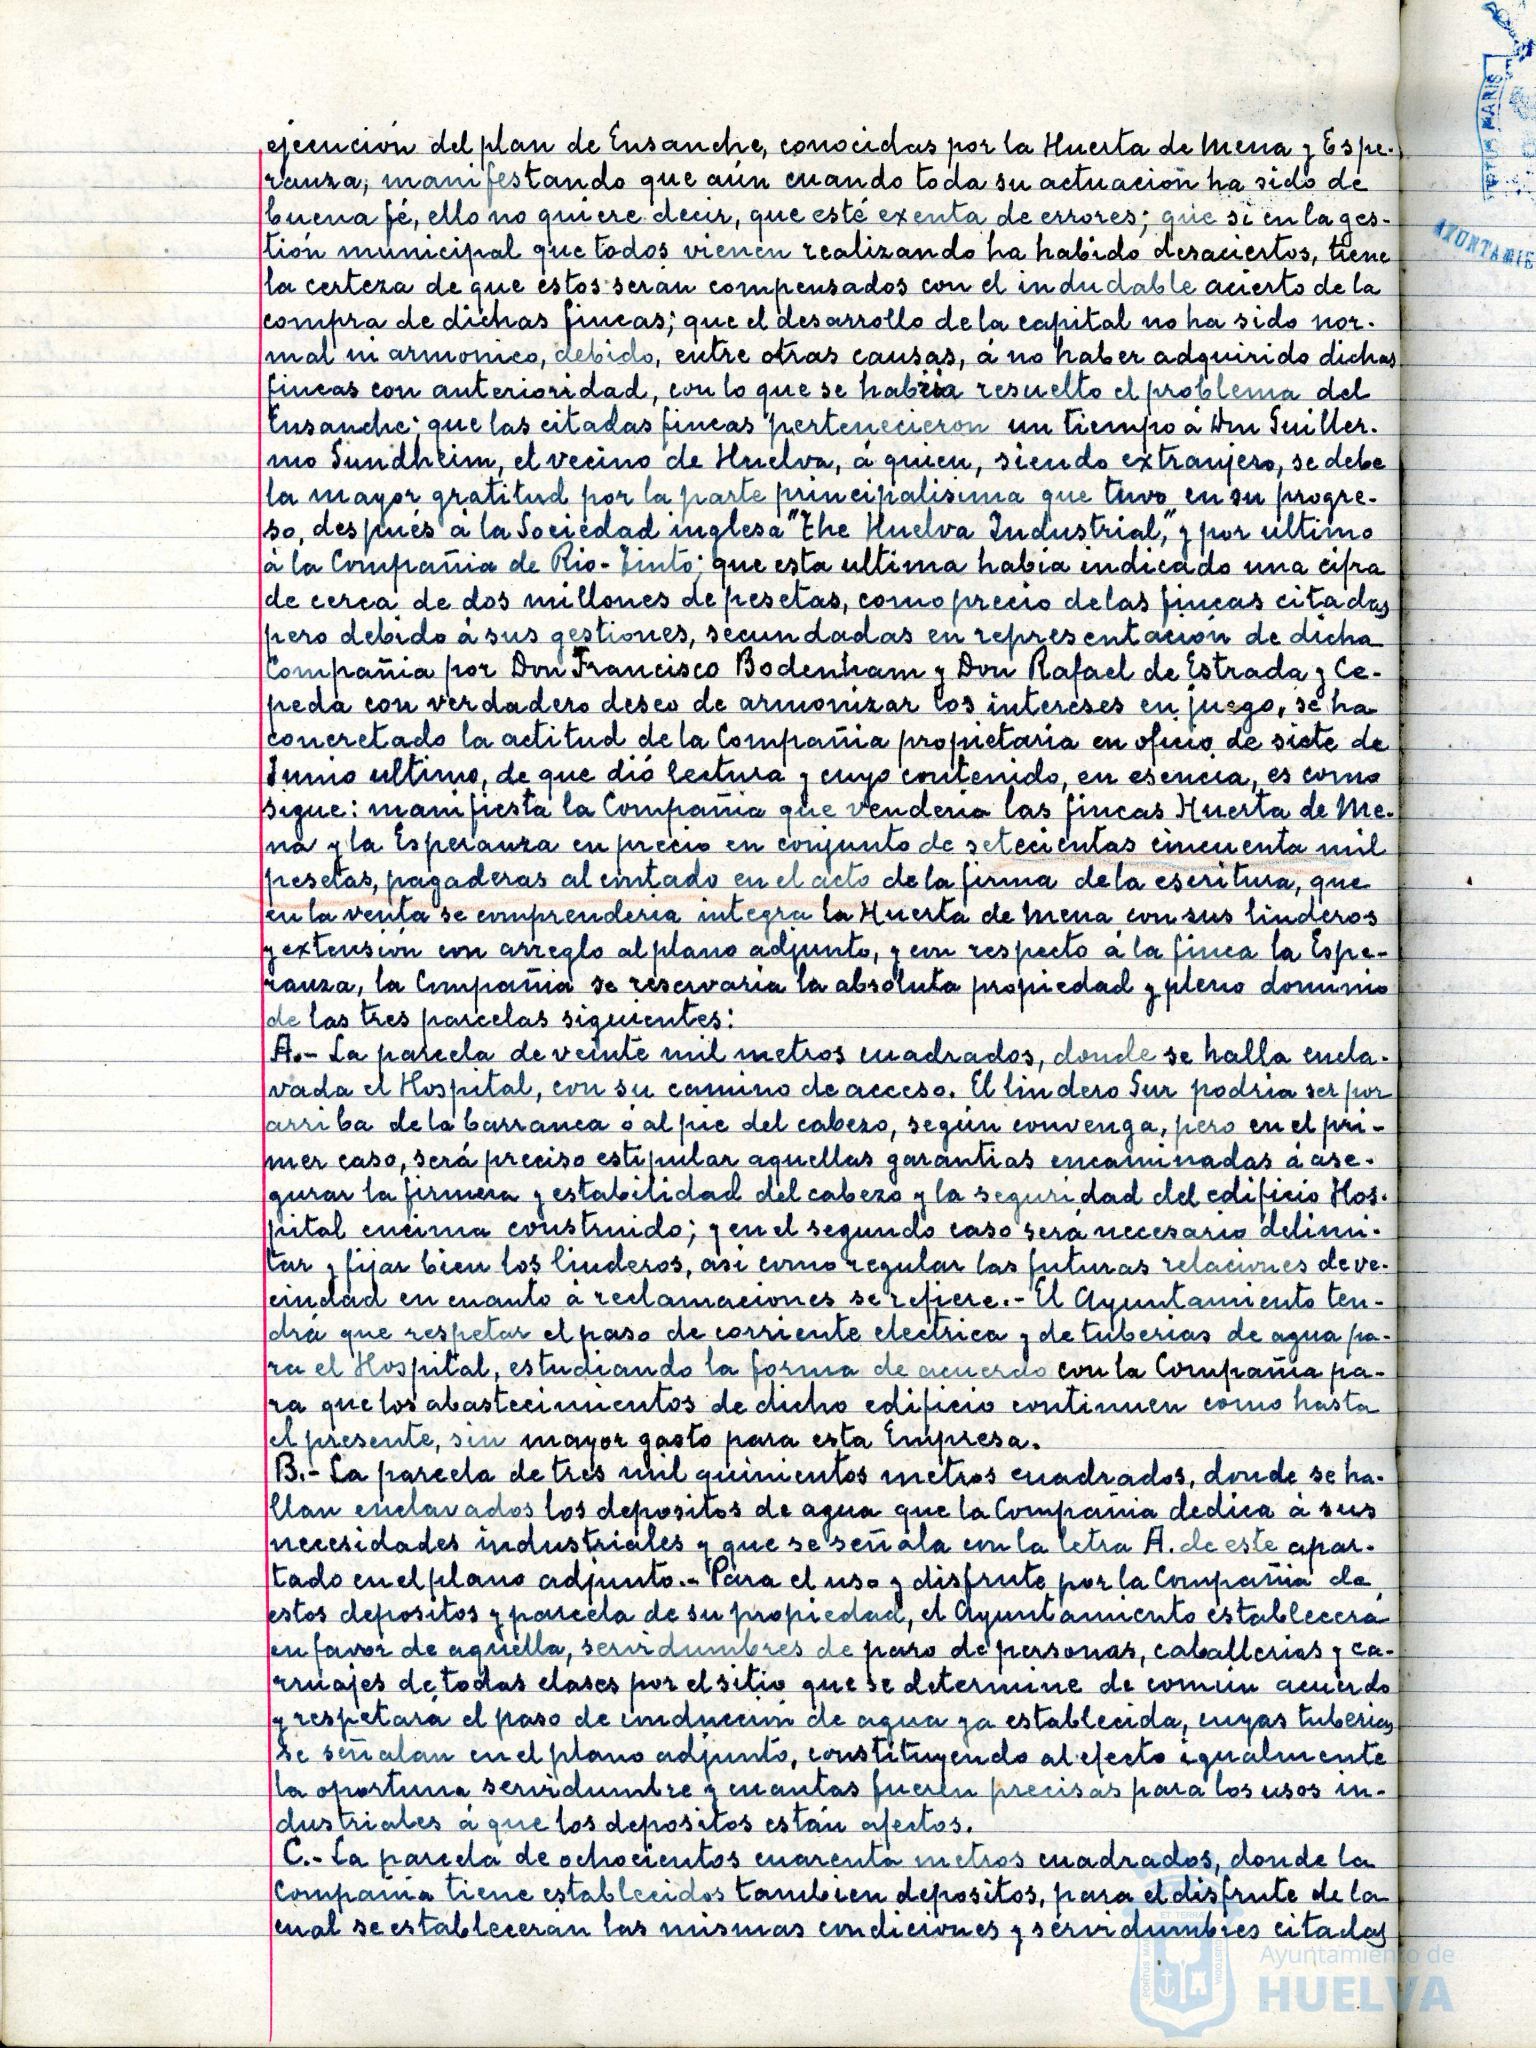 ejecución del plan de Ensanche, conocidas por la Huerta de Mena y Espe-
ranza, manifestando que aún cuando toda su actuación ha sido de
buena fé, ello no quiere decir, que esté exenta de errores; que si en la ges-
tión municipal que todos vienen realizando ha habido desaciertos, tiene
la certeza de que estos serán compensados con el indudable acierto de la
compra de dichas fincas; que el desarrollo de la capital no ha sido nor-
mal ni armonico, debido, entre otras causas, á no haber adquirido dichas
fincas con anterioridad, con lo que se habría resuelto el problema del
Ensanche; que las citadas fincas pertenecieron un tiempo á Don Guiller-
mo Sundheim, el vecino de Huelva, á quien, siendo extranjero, se debe
la mayor gratitud por la parte principalisima que tuvo en su progre-
so, después á la Sociedad inglesa "The Huelva Industrial", y por ultimo
á la Compañia de Rio-Tinto; que esta ultima habia indicado una cifra
de cerca de dos millones de pesetas, como precio de las fincas citadas
pero debido á sus gestiones, secundadas en representación de dicha
Compañia por Don Francisco Bodenham y Don Rafael de Estrada y Ce-
peda con verdadero deseo de armonizar los intereses en juego, se ha
concretado la actitud de la Compañia propietaria en oficio de siete de
Junio ultimo, de que dió lectura y cuyo contenido, en esencia, es como
sigue: manifiesta la Compañia que venderia las fincas Huerta de Me-
na y la Esperanza en precio en conjunto de setecientas cincuenta mil
pesetas, pagaderas al contado en el acto de la firma de la escritura, que
en la venta se comprenderia integra la Huerta de Mena con sus linderos
y extensión con arreglo al plano adjunto, y con respecto á la finca la Espe-
ranza, la Compañia se reservaria la absoluta propiedad y pleno dominio
de las tres parcelas siguientes:
A.- La parcela de veinte mil metros cuadrados, donde se halla encla-
vada el Hospital, con su camino de acceso. El lindero Sur podria ser por
arriba de la barranca ó al pie del cabezo, según convenga, pero en el pri-
mer caso, será preciso estipular aquellas garantias encaminadas á ase-
gurar la firmeza y estabilidad del cabezo y la seguridad del edificio Hos-
pital encima construido; y en el segundo caso será necesario delimi-
tar y fijar bien los linderos, asi como regular las futuras relaciones de ve-
cindad en cuanto á reclamaciones se refiere.- El Ayuntamiento ten-
drá que respetar el paso de corriente electrica y de tuberias de agua pa-
ra el Hospital, estudiando la forma de acuerdo con la Compañia pa-
ra que los abastecimientos de dicho edificio continuen como hasta
el presente, sin mayor gasto para esta Empresa.
B.- La parcela de tres mil quinientos metros cuadrados, donde se ha-
llan enclavados los depositos de agua que la Compañia dedica á sus
necesidades industriales y que se señala con la letra A. de este apar-
tado en el plano adjunto.- Para el uso y disfrute por la Compañia de
estos depositos y parcela de su propiedad, el Ayuntamiento establecerá
en favor de aquella, servidumbres de paso de personas, caballerias y ca-
rruajes de todas clases por el sitio que se determine de común acuerdo
y respetará el paso de conducción de agua ya establecida, cuyas tuberias
se señalan en el plano adjunto, constituyendo al efecto igualmente
la oportuna servidumbre y cuantas fueren precisas para los usos in-
dustriales á que los depositos están afectos.
C.- La parcela de ochocientos cuarenta metros cuadrados, donde la
Compañia tiene establecidos tambien depositos, para el disfrute de la
cual se establecerán las mismas condiciones y servidumbres citadas
MARIS
AYUNTAMIE
Ayuntamiento de
HUELVA